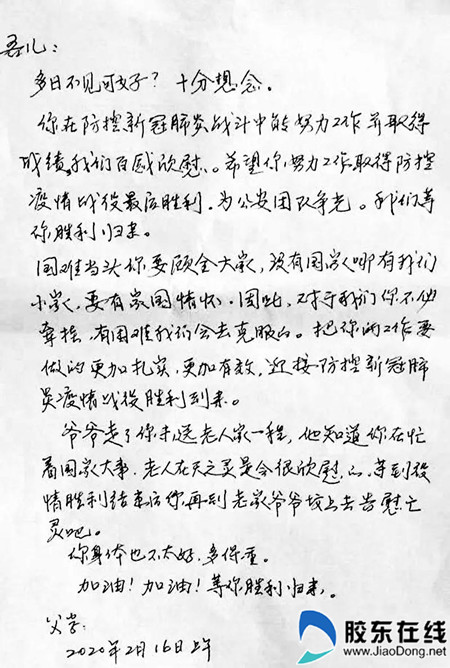 吾儿：
多日不见可好？十分想念。
你在防控新冠肺炎战斗中能努力工作并取得
成绩，我们百感欣慰。希望你努力工作取得防控
疫情战役最后胜利，为公安团队争光。我们等
你胜利归来。
国难当头你要顾全大家，没有国家哪有我们
小家，要有家国情怀。因此，对于我们你不必
牵挂，有困难我们会去克服的。把你的工作要
做的更加扎实，更加有效，迎接防控新冠肺
炎疫情战役胜利到来。
爷爷走了你未送老人家一程，他知道你在忙
着国家大事，老人在天之灵是会很欣慰的，等到疫
情胜利结束后你再到老家爷爷坟上去告慰亡
灵吧。
你身体也不太好，多保重。
加油！加油！等你胜利归来。
父字：
2020年2月16日上午
胶东在线
www.JiaoDong.net